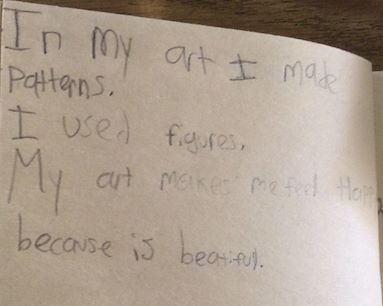 In My art I made
Patterns.
I used figures.
My art makes me feel Happ
because is beatiful.